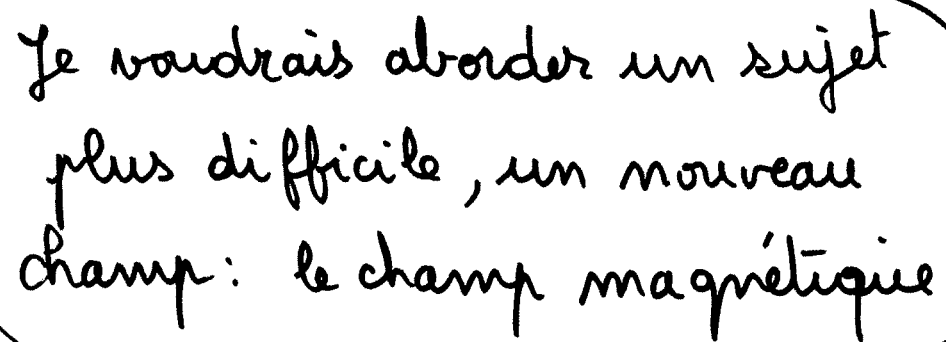 Je voudrais aborder un sujet
plus difficile, un nouveau
champ: le champ magnétique